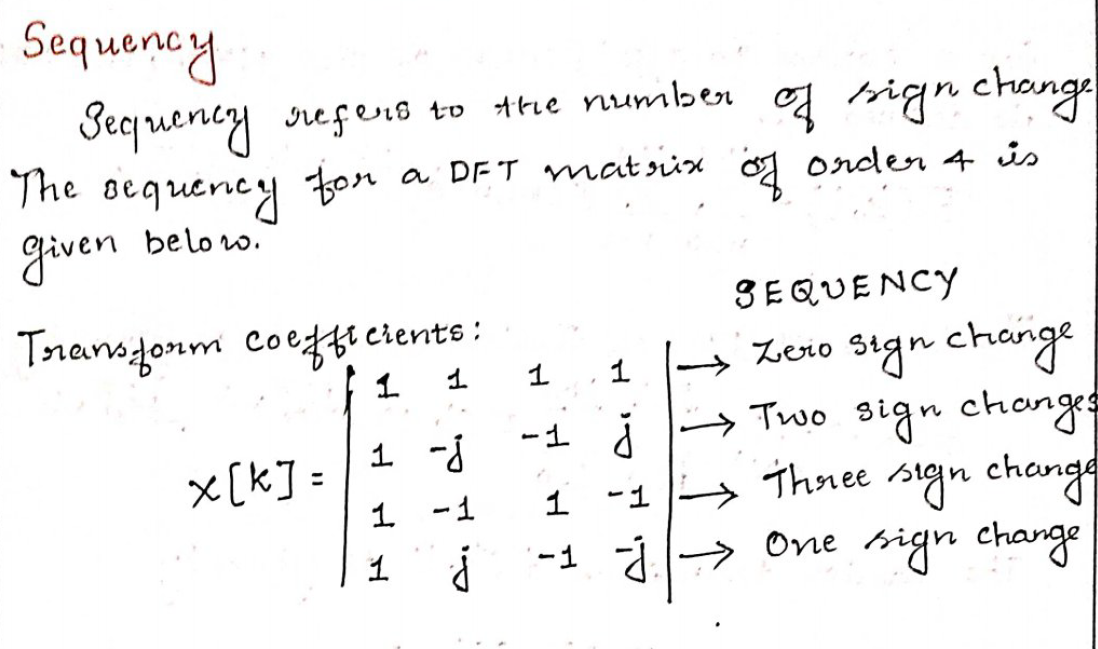 Sequency
Sequency refers to the number of sign change
The sequency for a DFT matrix of order 4 is
given below.
SEQUENCY
Transform coefficients:
1 1 1 1 → Zero sign change
1 -j -1 j → Two sign changes
X[k] =
1 -1 1 -1 → Three sign change
1 j -1 -j → One sign change